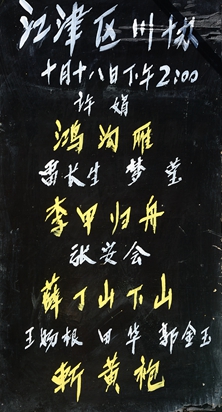 江津区川协
十月十八日下午2:00
许娟
鸿沟雁
雷长生 梦莹
李甲归舟
张安会
薛丁山下山
王肠根 田华 郭金玉
斩黄袍